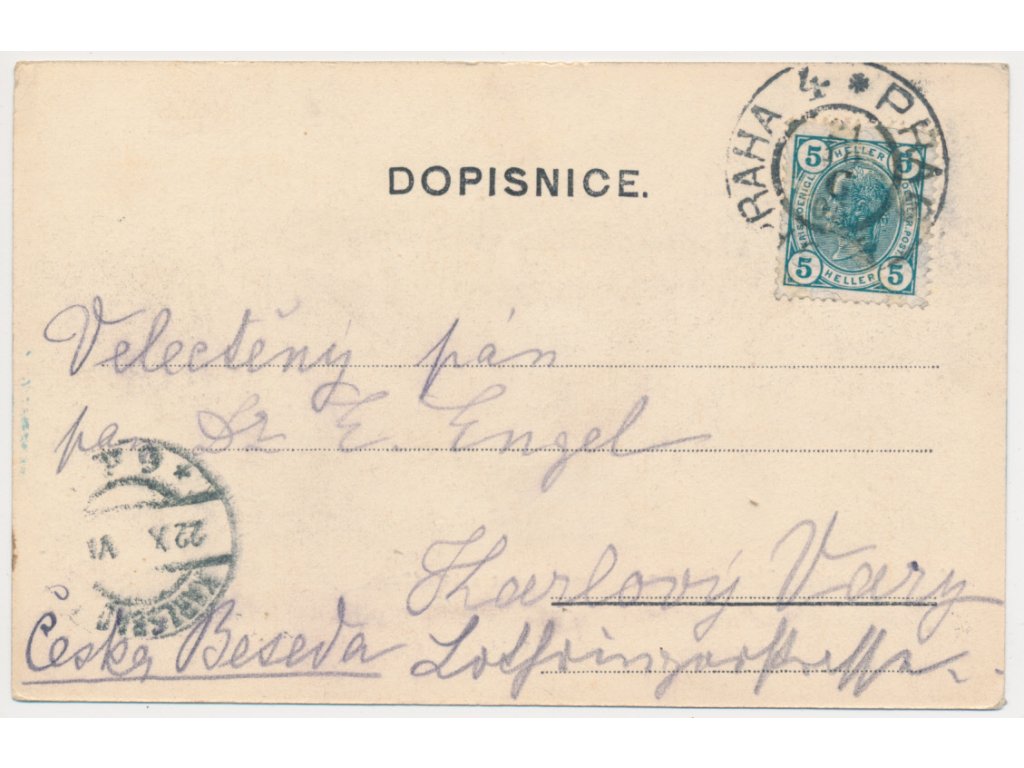 DOPISNICE.
PRAHA 4 * PRAG
5 HELLER 5
5 HELLER 5
Velectěný pán
pan Dr E. Engel
Karlový Vary
Česká Beseda Lothringerstrasse
* 6 a
22 X VI
KARLSBAD